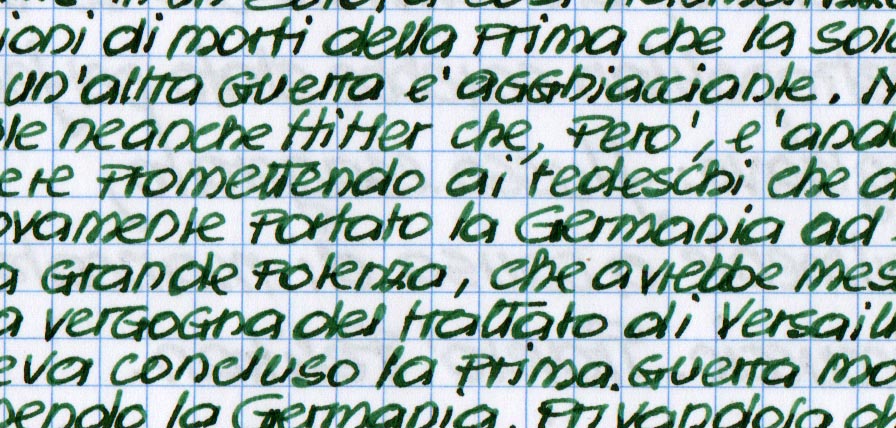 ioni di morti della Prima che la sola
un'altra guerra e' agghiacciante. N
le neanche Hitler che, però, e' anda
ere promettendo ai tedeschi che a
ovamente portato la Germania ad
a grande potenza, che avrebbe mes
a vergogna del trattato di Versail
eva concluso la prima guerra mo
endo la Germania, privandola d